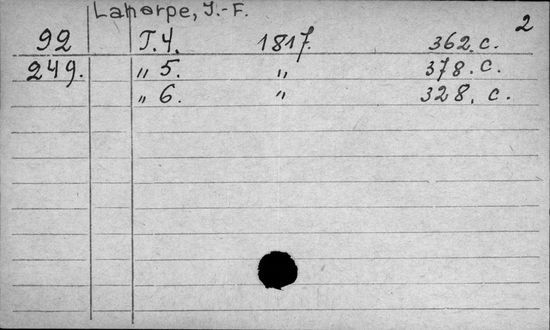 Laharpe, J.-F.
2
92 T.4. 1817. 362.c.
249. „ 5. „ 378.c.
„ 6. „ 328.c.